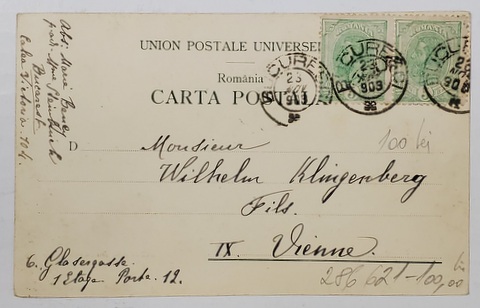 UNION POSTALE UNIVERSE
România
CARTA POS
BUCURESCI
23
903
BUCURESCI
23
903
ROMANIA
ROMANIA
23
Abs: Marie
Bucarest
Calea Victoriei 104.
D
Monsieur
Wilhelm Klingenberg
Fils.
IX. Vienne.
6. Glasergasse
1 Etage Porte. 12.
100 lei
286 621 - 100,00
lei